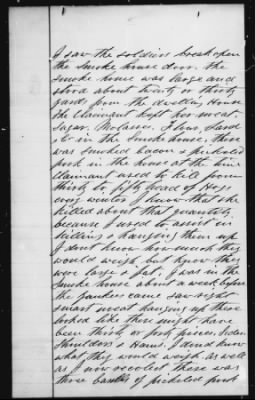 I saw the soldiers break open
the Smoke house door. the
smoke house was large and
stood about twenty or thirty
yards from the dwelling House
the Claimant kept her meat.
Sugar. Molasses, Flour Lard
&c in the Smoke house, there
was smoked bacon & pickeled
pork in the house at the time
Claimant used to kill from
thirty to fifty head of Hogs
every winter I know that she
killed about that quantity
because I used to assist in
killing & hanging them up
I dont know how much they
would weigh but know they
were large & fat. I was in the
smoke house about a week before
the yankees came saw right
smart meat hanging up there
looked like there might have
been thirty or forty pieces. Sides
Shoulders & Hams. I dont know
what they would weigh. as well
as I now recolect there was
three barrels of pickeled pork